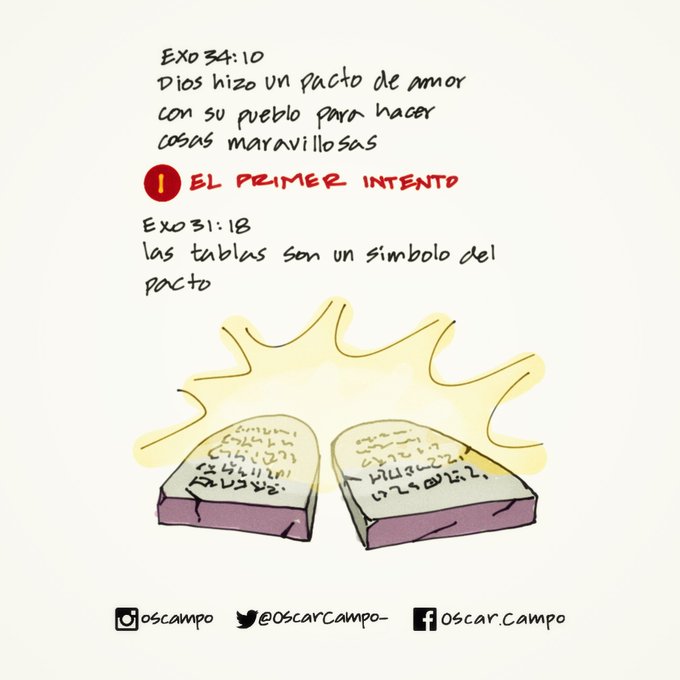 Exo 34:10
Dios hizo un pacto de amor
con su pueblo para hacer
cosas maravillosas
1 EL PRIMER INTENTO
Exo 31:18
las tablas son un símbolo del
pacto
oscampo @OscarCampo_ oscar.campo